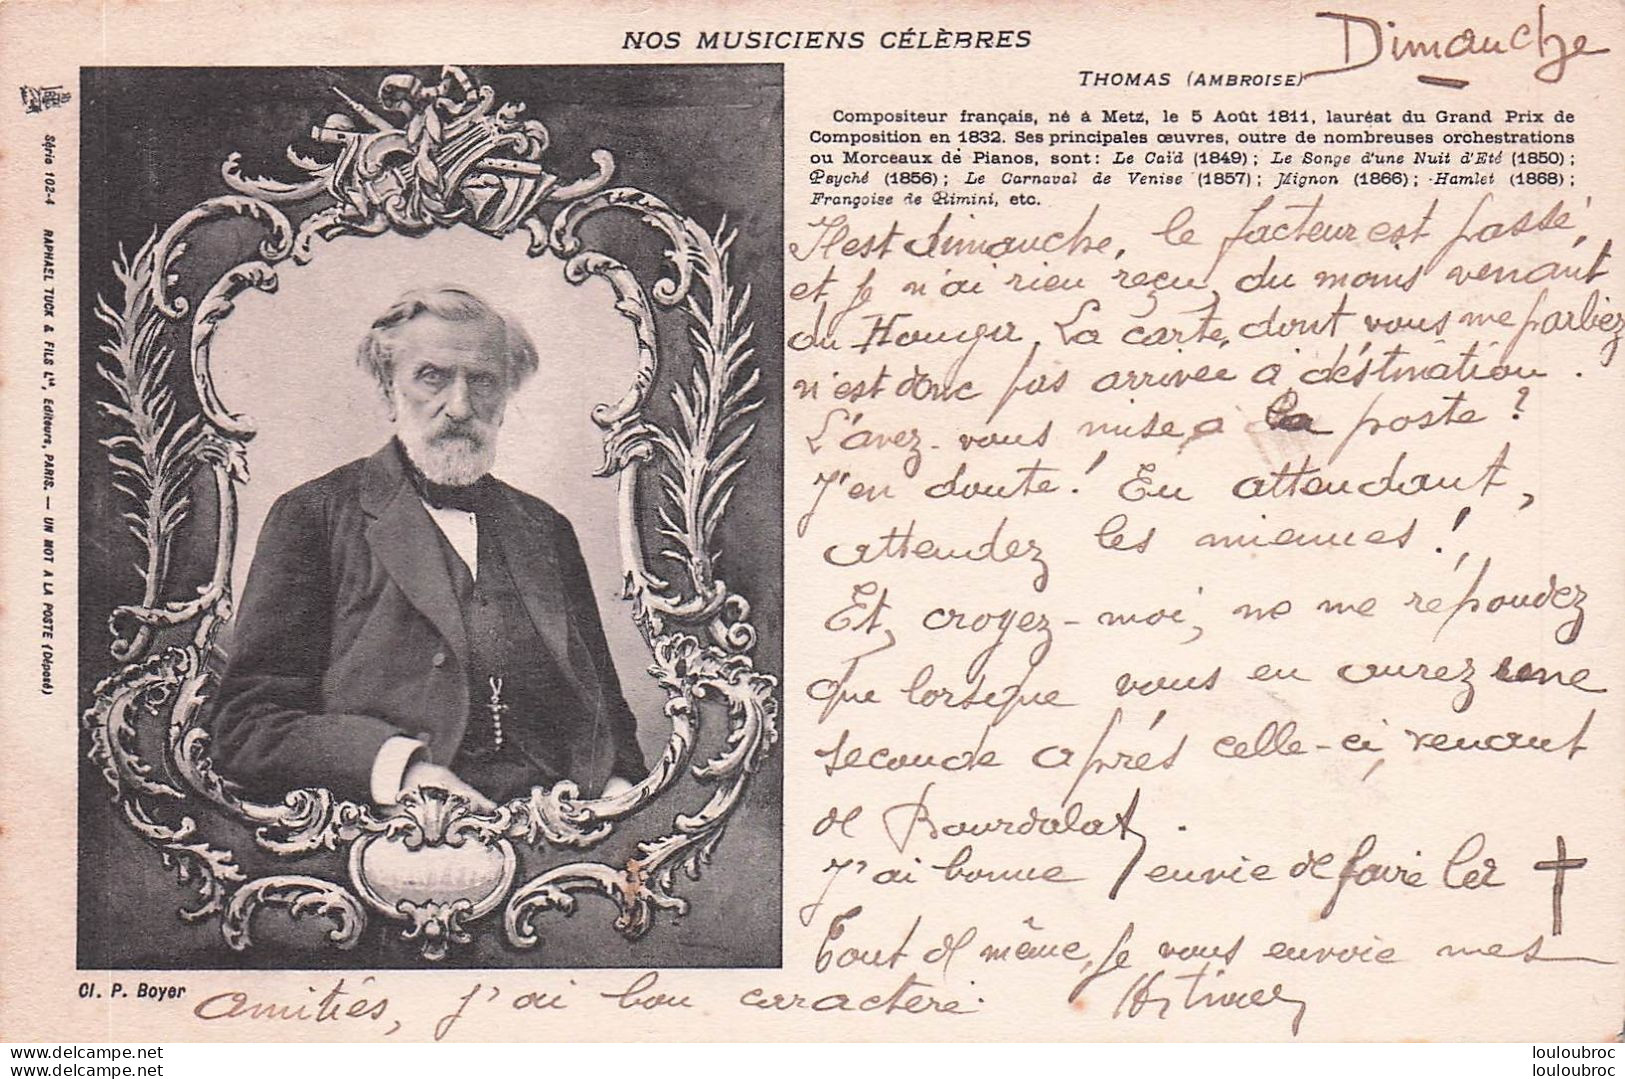 NOS MUSICIENS CÉLÈBRES
Dimanche
THOMAS (AMBROISE)
Compositeur français, né à Metz, le 5 Août 1811, lauréat du Grand Prix de
Composition en 1832. Ses principales œuvres, outre de nombreuses orchestrations
ou Morceaux de Pianos, sont: Le Caïd (1849); Le Songe d'une Nuit d'Eté (1850);
Psyché (1856); Le Carnaval de Venise (1857); Mignon (1866); Hamlet (1868);
Françoise de Rimini, etc.
Il est dimanche, le facteur est passé,
et je n'ai rien reçu, du moins venant
du. La carte, dont vous me parliez
n'est donc pas arrivée à déstination.
L'avez-vous mise a la poste?
J'en doute! En attendant,
attendez les miennes!
Et, croyez-moi, ne me répondez
que lorsque vous en aurez une
seconde après celle-ci, venant
de Bourdalat.
J'ai bonne envie de faire la †
Tout de même, je vous envoie mes
amitiés, j'ai bon caractère.
Série 102-4 RAPHAEL TUCK & FILS Ld, Editeurs, PARIS. — UN MOT A LA POSTE (Déposé)
Cl. P. Boyer
www.delcampe.net
www.delcampe.net
louloubroc
louloubroc